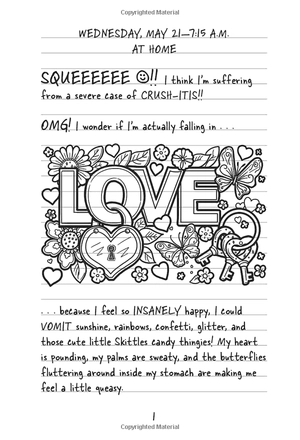 Copyrighted Material
WEDNESDAY, MAY 21—7:15 A.M.
AT HOME
SQUEEEEEE ☺!! I think I'm suffering
from a severe case of CRUSH-ITIS!!
OMG! I wonder if I'm actually falling in . . .
LOVE
. . . because I feel so INSANELY happy, I could
VOMIT sunshine, rainbows, confetti, glitter, and
those cute little Skittles candy thingies! My heart
is pounding, my palms are sweaty, and the butterflies
fluttering around inside my stomach are making me
feel a little queasy.
1
Copyrighted Material